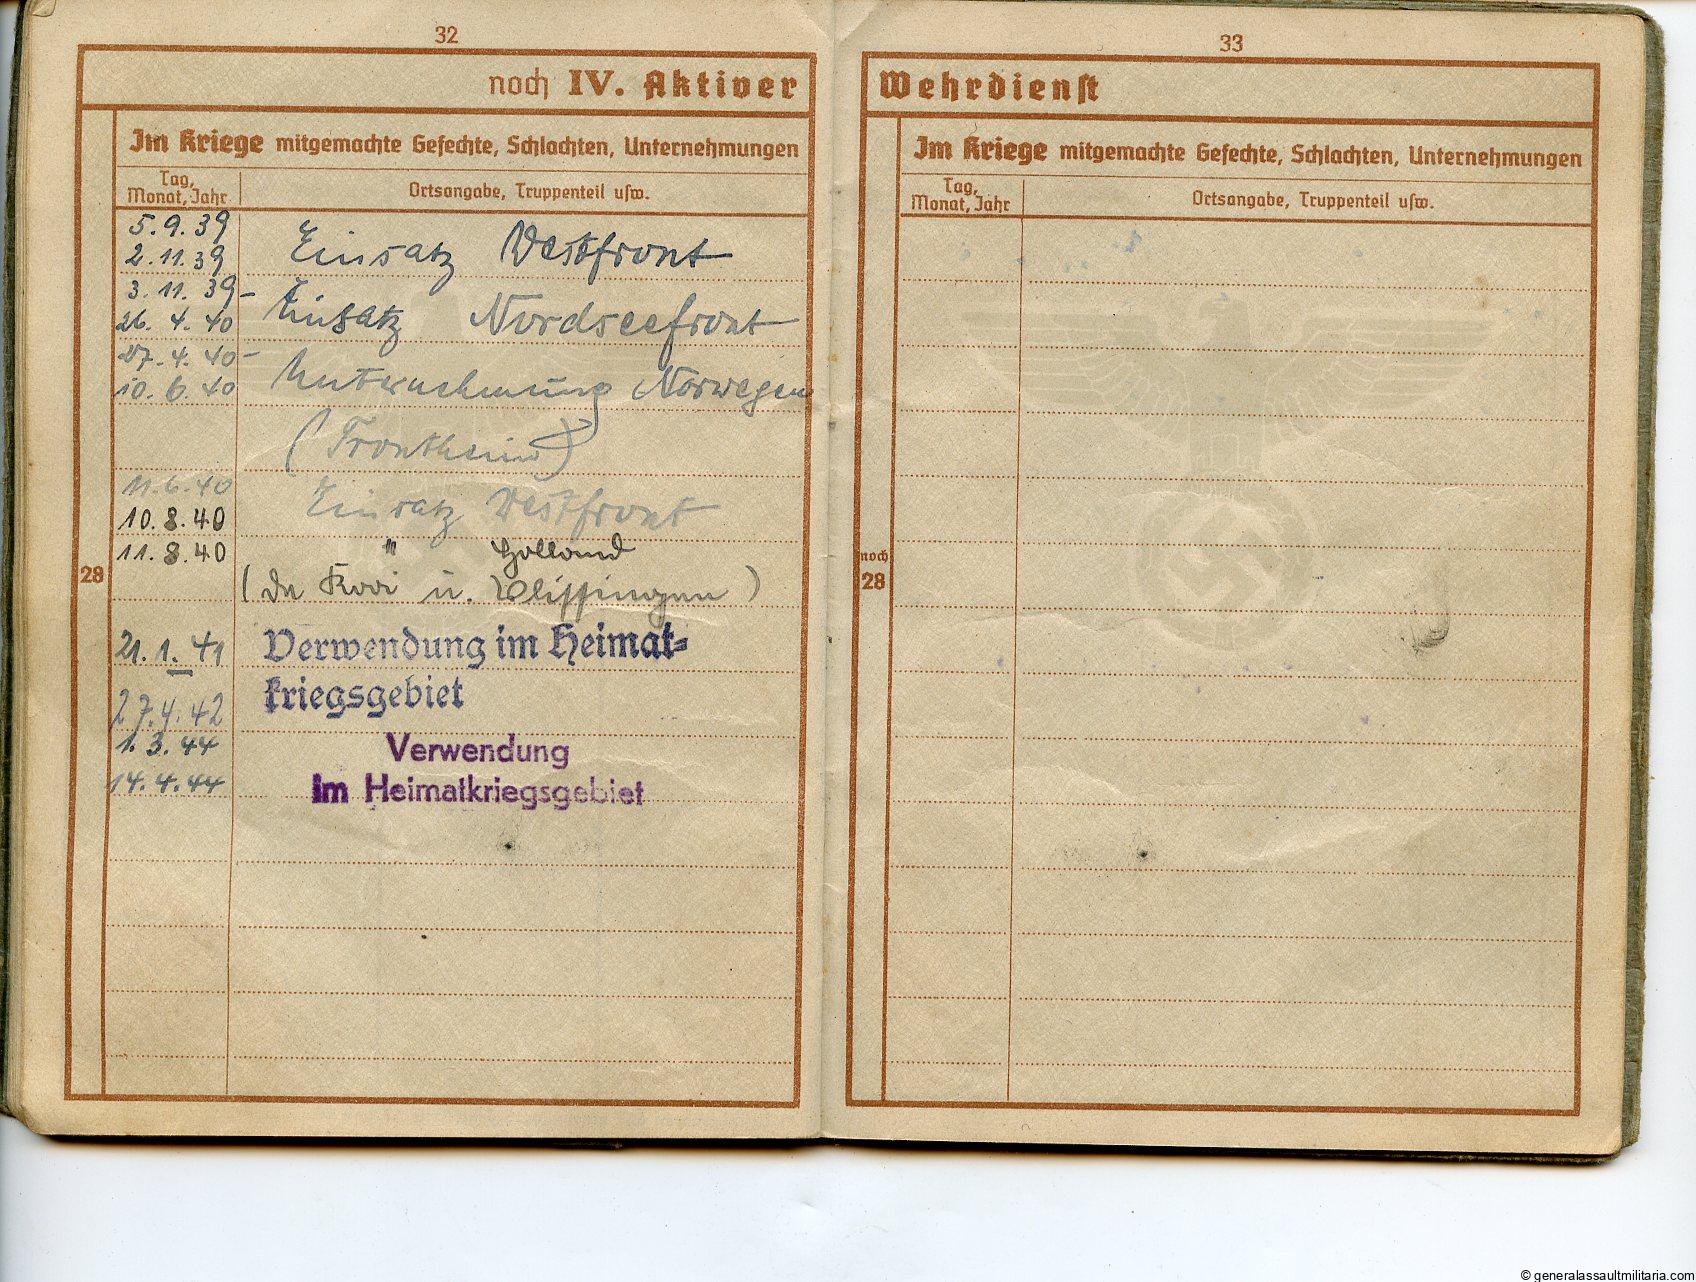 32
noch IV. Aktiver
Im Kriege mitgemachte Gefechte, Schlachten, Unternehmungen
Tag,
Monat, Jahr
Ortsangabe, Truppenteil usw.
5.9.39
2.11.39
Einsatz Westfront
3.11.39-
26.4.40
Einsatz Nordseefront
27.4.40-
10.6.40
Unternehmung Norwegen
(Drontheim)
11.6.40
10.8.40
Einsatz Westfront
11.8.40
" Holland
28
(De Kooi u. Vlissingen)
21.1.41
Verwendung im Heimat-
kriegsgebiet
27.4.42
1.3.44
Verwendung
14.4.44
Im Heimatkriegsgebiet
33
Wehrdienst
Im Kriege mitgemachte Gefechte, Schlachten, Unternehmungen
Tag,
Monat, Jahr
Ortsangabe, Truppenteil usw.
noch
28
© generalassaultmilitaria.com